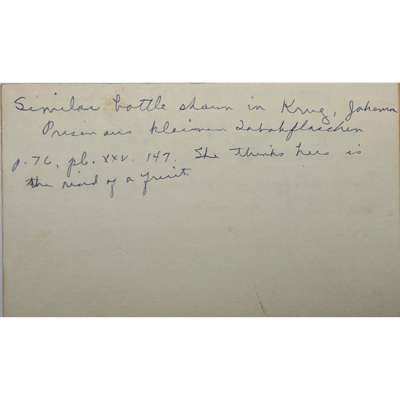 Similar bottle shown in Krug, Johanna
Prisma aus kleinen Tabakflaschen
p. 76, pl. XXV. 147. She thinks hers is
the rind of a fruit